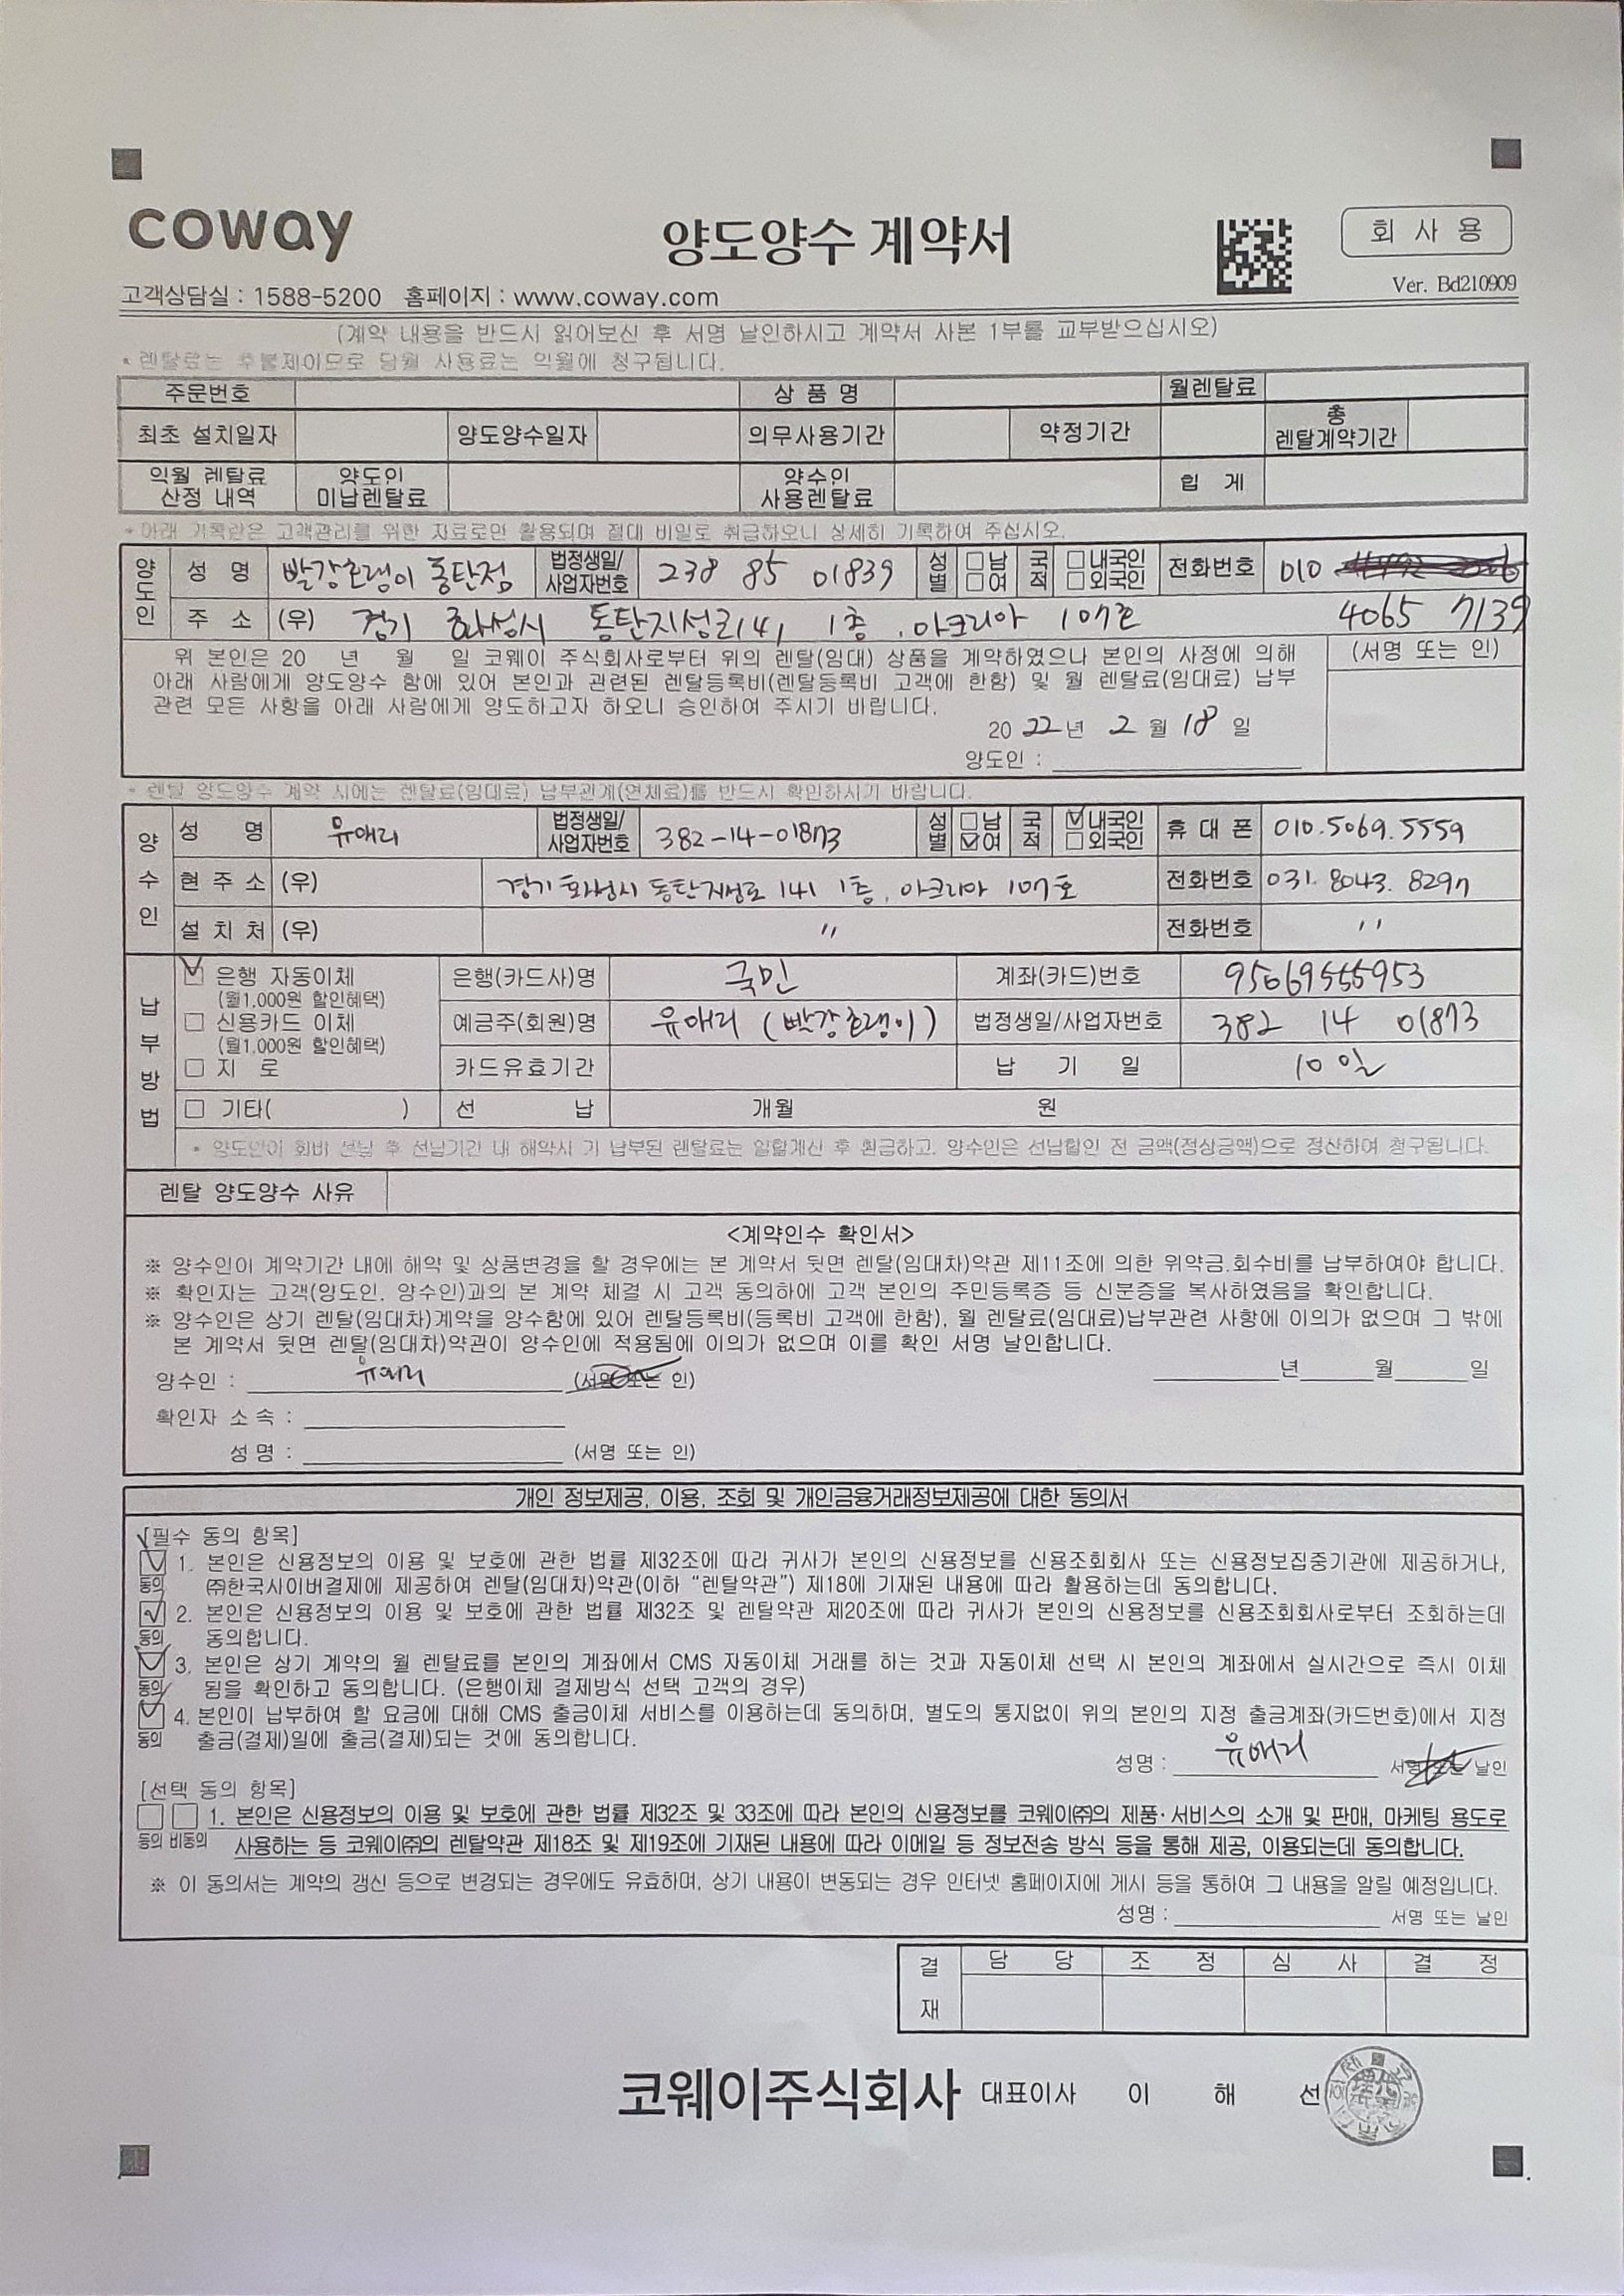 coway
양도양수 계약서
회 사 용
Ver. Bd210909
고객상담실 : 1588-5200 홈페이지 : www.coway.com
(계약 내용을 반드시 읽어보신 후 서명 날인하시고 계약서 사본 1부를 교부받으십시오)
* 렌탈료는 후불제이므로 당월 사용료는 익월에 청구됩니다.
주문번호 상 품 명 월렌탈료
최초 설치일자 양도양수일자 의무사용기간 약정기간 총 렌탈계약기간
익월 렌탈료 산정 내역 양도인 미납렌탈료 양수인 사용렌탈료 합 계
* 아래 기록란은 고객관리를 위한 자료로만 활용되며 절대 비밀로 취급하오니 상세히 기록하여 주십시오.
양도인 성 명 빨강호랭이 동탄점 법정생일/사업자번호 238 85 01839 성별 □남 □여 국적 □내국인 □외국인 전화번호 010
4065 7139
주 소 (우) 경기 화성시 동탄지성로141 1층, 아크리아 107호
위 본인은 20 년 월 일 코웨이 주식회사로부터 위의 렌탈(임대) 상품을 계약하였으나 본인의 사정에 의해
아래 사람에게 양도양수 함에 있어 본인과 관련된 렌탈등록비(렌탈등록비 고객에 한함) 및 월 렌탈료(임대료) 납부
관련 모든 사항을 아래 사람에게 양도하고자 하오니 승인하여 주시기 바랍니다.
(서명 또는 인)
20 22년 2 월 18 일
양도인 :
* 렌탈 양도양수 계약 시에는 렌탈료(임대료) 납부관계(연체료)를 반드시 확인하시기 바랍니다.
양수인 성 명 유애리 법정생일/사업자번호 382-14-01873 성별 □남 ☑여 국적 ☑내국인 □외국인 휴 대 폰 010.5069.5559
현 주 소 (우) 경기 화성시 동탄지성로 141 1층, 아크리아 107호 전화번호 031. 8043. 8297
설 치 처 (우) " 전화번호 "
납부방법 ☑ 은행 자동이체 은행(카드사)명 국민 계좌(카드)번호 95069555953
(월1,000원 할인혜택)
□ 신용카드 이체 예금주(회원)명 유애리 (빨강호랭이) 법정생일/사업자번호 382 14 01873
(월1,000원 할인혜택)
□ 지 로 카드유효기간 납 기 일 10일
□ 기타( ) 선 납 개월 원
* 양도인이 회비 선납 후 선납기간 내 해약시 기 납부된 렌탈료는 일할계산 후 환급하고, 양수인은 선납할인 전 금액(정상금액)으로 정산하여 청구됩니다.
렌탈 양도양수 사유
<계약인수 확인서>
※ 양수인이 계약기간 내에 해약 및 상품변경을 할 경우에는 본 계약서 뒷면 렌탈(임대차)약관 제11조에 의한 위약금.회수비를 납부하여야 합니다.
※ 확인자는 고객(양도인. 양수인)과의 본 계약 체결 시 고객 동의하에 고객 본인의 주민등록증 등 신분증을 복사하였음을 확인합니다.
※ 양수인은 상기 렌탈(임대차)계약을 양수함에 있어 렌탈등록비(등록비 고객에 한함), 월 렌탈료(임대료)납부관련 사항에 이의가 없으며 그 밖에
본 계약서 뒷면 렌탈(임대차)약관이 양수인에 적용됨에 이의가 없으며 이를 확인 서명 날인합니다.
양수인 : 유애리 (서명 또는 인) 년 월 일
확인자 소 속 :
성 명 : (서명 또는 인)
개인 정보제공, 이용, 조회 및 개인금융거래정보제공에 대한 동의서
[필수 동의 항목]
☑ 1. 본인은 신용정보의 이용 및 보호에 관한 법률 제32조에 따라 귀사가 본인의 신용정보를 신용조회회사 또는 신용정보집중기관에 제공하거나,
동의 ㈜한국사이버결제에 제공하여 렌탈(임대차)약관(이하 “렌탈약관”) 제18에 기재된 내용에 따라 활용하는데 동의합니다.
☑ 2. 본인은 신용정보의 이용 및 보호에 관한 법률 제32조 및 렌탈약관 제20조에 따라 귀사가 본인의 신용정보를 신용조회회사로부터 조회하는데
동의 동의합니다.
☑ 3. 본인은 상기 계약의 월 렌탈료를 본인의 계좌에서 CMS 자동이체 거래를 하는 것과 자동이체 선택 시 본인의 계좌에서 실시간으로 즉시 이체
동의 됨을 확인하고 동의합니다. (은행이체 결제방식 선택 고객의 경우)
☑ 4. 본인이 납부하여 할 요금에 대해 CMS 출금이체 서비스를 이용하는데 동의하며, 별도의 통지없이 위의 본인의 지정 출금계좌(카드번호)에서 지정
동의 출금(결제)일에 출금(결제)되는 것에 동의합니다.
성명 : 유애리 서명 또는 날인
[선택 동의 항목]
□ □ 1. 본인은 신용정보의 이용 및 보호에 관한 법률 제32조 및 33조에 따라 본인의 신용정보를 코웨이㈜의 제품·서비스의 소개 및 판매, 마케팅 용도로
동의 비동의 사용하는 등 코웨이㈜의 렌탈약관 제18조 및 제19조에 기재된 내용에 따라 이메일 등 정보전송 방식 등을 통해 제공, 이용되는데 동의합니다.
※ 이 동의서는 계약의 갱신 등으로 변경되는 경우에도 유효하며, 상기 내용이 변동되는 경우 인터넷 홈페이지에 게시 등을 통하여 그 내용을 알릴 예정입니다.
성명 : 서명 또는 날인
결재 담 당 조 정 심 사 결 정
코웨이주식회사 대표이사 이 해 선